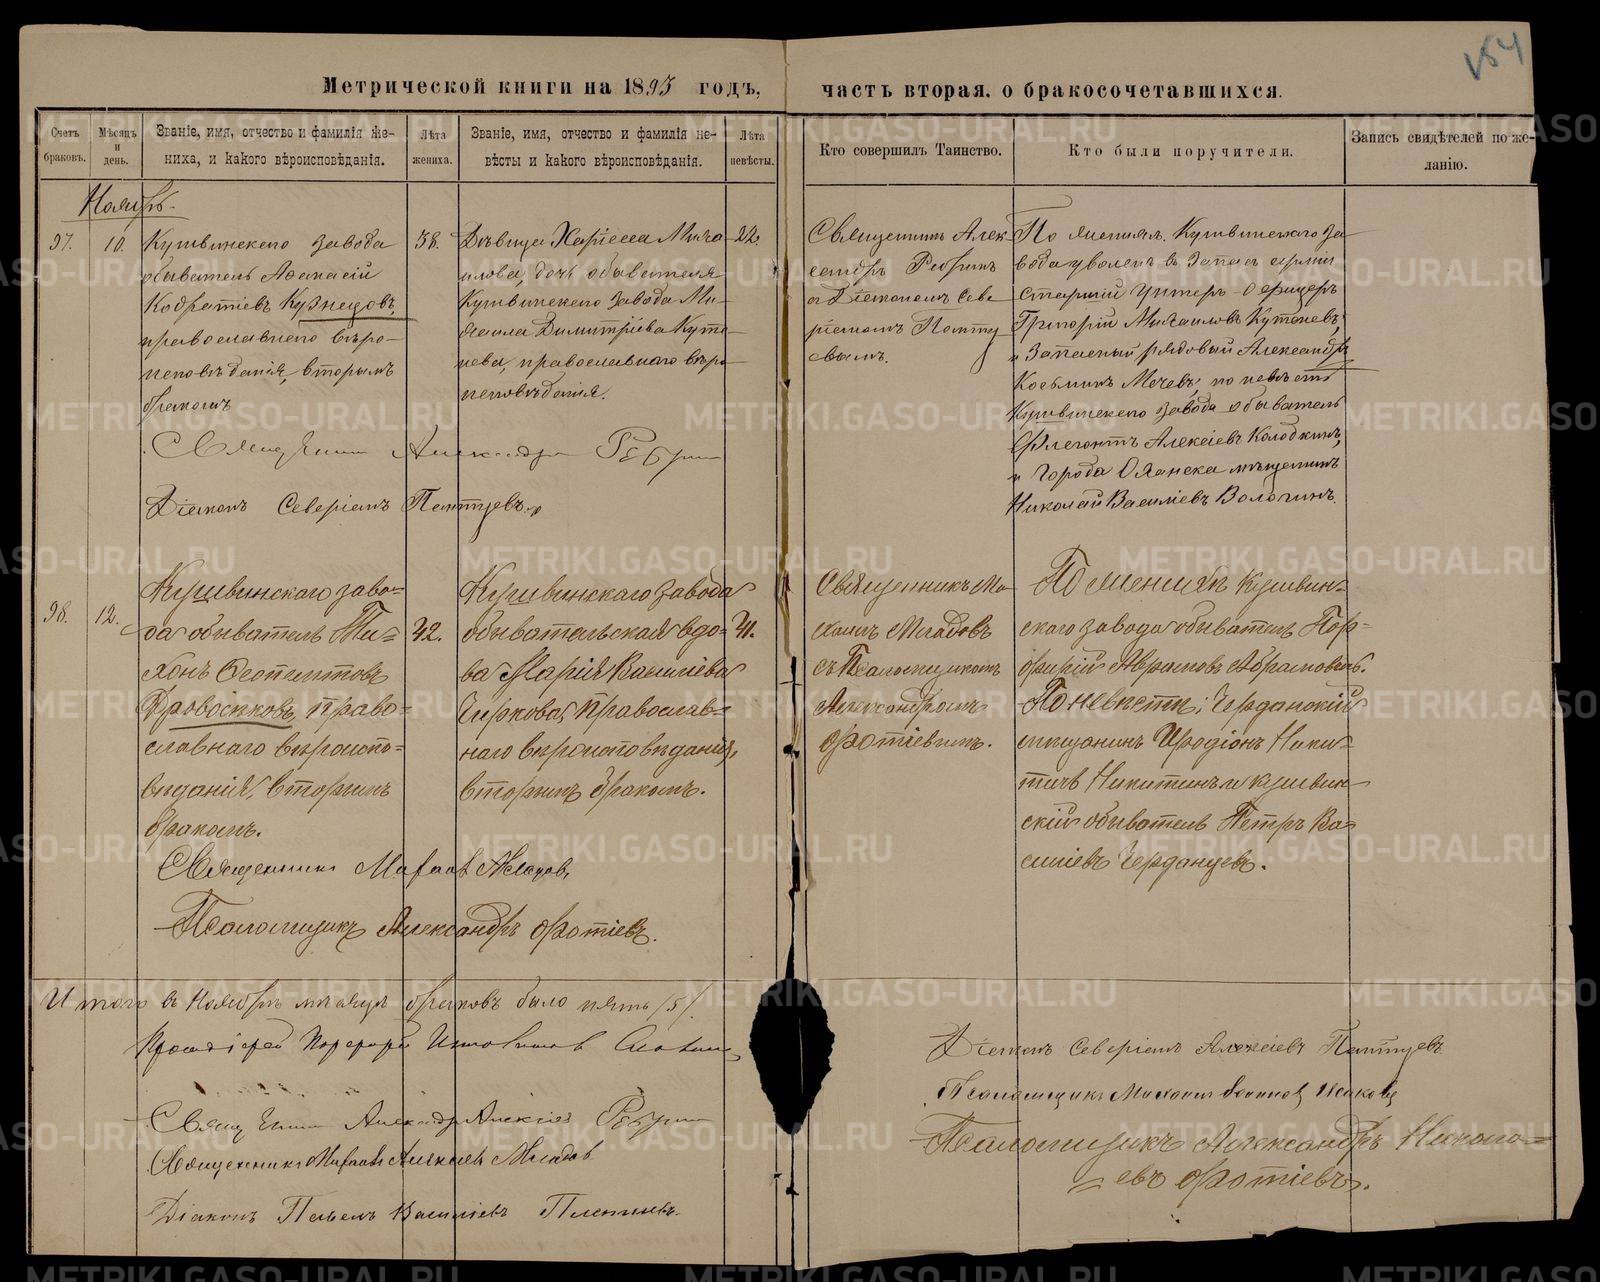 154
Метрической книги на 1893 годъ,
часть вторая. о бракосочетавшихся.
Счетъ браковъ.
Мѣсяцъ и день.
Званіе, имя, отчество и фамилія же-
ниха, и какого вѣроисповѣданія.
Лѣта жениха.
Званіе, имя, отчество и фамилія не-
вѣсты и какого вѣроисповѣданія.
Лѣта невѣсты.
Кто совершилъ Таинство.
Кто были поручители.
Запись свидѣтелей по же-
ланію.
Ноябрь.
97.
10.
Кушвинскаго завода
обыватель Аѳанасій
Кодратіевъ Кузнецовъ,
православнаго вѣро-
исповѣданія, вторымъ
бракомъ
38.
Дѣвица Хариесса Миха
илова, дочь обывателя
Кушвинскаго завода Ми-
хаила Димитріева Куте-
нева, православнаго вѣро
исповѣданія.
22.
Священникъ Алек
сандръ Ребринъ
съ Діакономъ Севе
ріаномъ Попту
евымъ.
По женихѣ. Кушвинскаго за-
вода уволен. въ Запасъ арміи
старшій Унтеръ-Офицеръ
Григорій Михаиловъ Кутеневъ,
и Запасный рядовый Александръ
Косьминъ Мечевъ по невѣстѣ
Кушвинскаго завода обыватель
Флегонтъ Алексіевъ Колодкинъ,
и Города Оханска мѣщанинъ
Николай Василіевъ Вологинъ.
Священникъ Александръ Ребринъ
Діаконъ Северіанъ
98.
12.
Кушвинскаго заво-
да обыватель Ти-
хонъ Ѳеопемптовъ
Дровосѣковъ, право-
славнаго вѣроиспо-
вѣданія, вторымъ
бракомъ.
42.
Кушвинскаго завода
обывательская вдо-
ва Марія Василіева
Чиркова, православ-
наго вѣроисповѣданія,
вторымъ бракомъ.
41.
Священникъ Ми
хаилъ Младовъ
съ Псаломщикомъ
Александромъ
Фотіевымъ.
По женихѣ Кушвин-
скаго завода обыватель Пор-
фирій Аврамовъ Абрамовъ.
По невѣстѣ: Чердынскій
мѣщанинъ Иродіонъ Ники-
тичъ Никитинъ и кушвин-
скій обыватель Петръ Ва-
силіевъ Черданцевъ.
Священникъ Михаилъ Младовъ,
Псаломщикъ Александръ Фотіевъ.
Итого въ Ноябрѣ мѣсяцѣ браковъ было пять /5/.
Протоіерей Порфирій
Священникъ Александръ Алексіевъ Ребринъ
Священникъ Михаилъ Алексіевъ Младовъ
Діаконъ Павелъ Василіевъ
Діаконъ Северіанъ Алексіевъ
Псаломщикъ Михаилъ
Псаломщикъ Александръ Никола-
евъ Фотіевъ.
METRIKI.GASO-URAL.RU